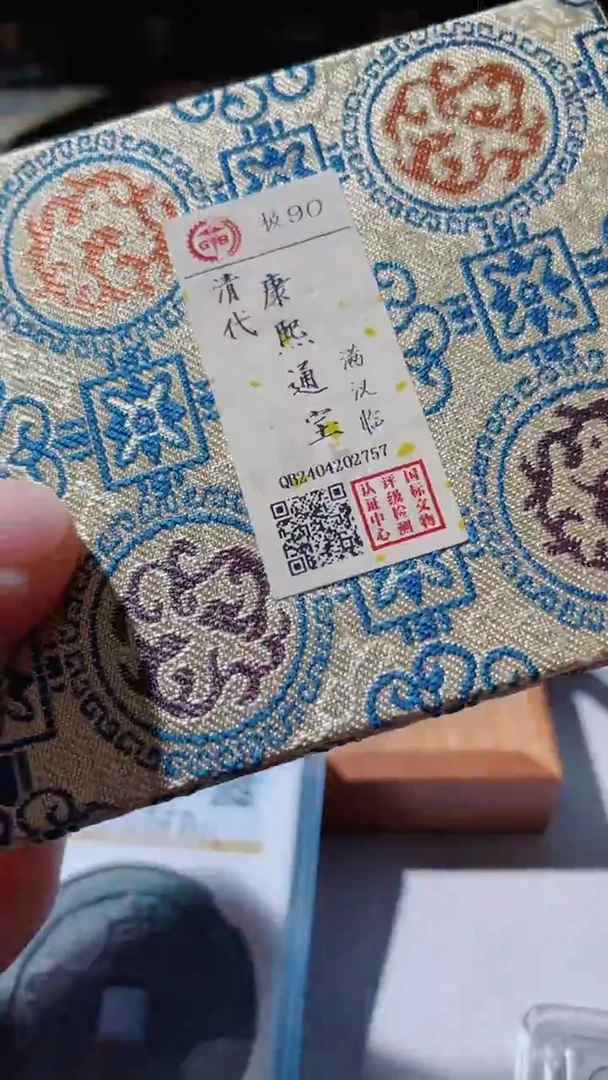 GB
极90
清代
康熙通宝
满汉临
QB2404202757
国标文物
评级检测
认证中心